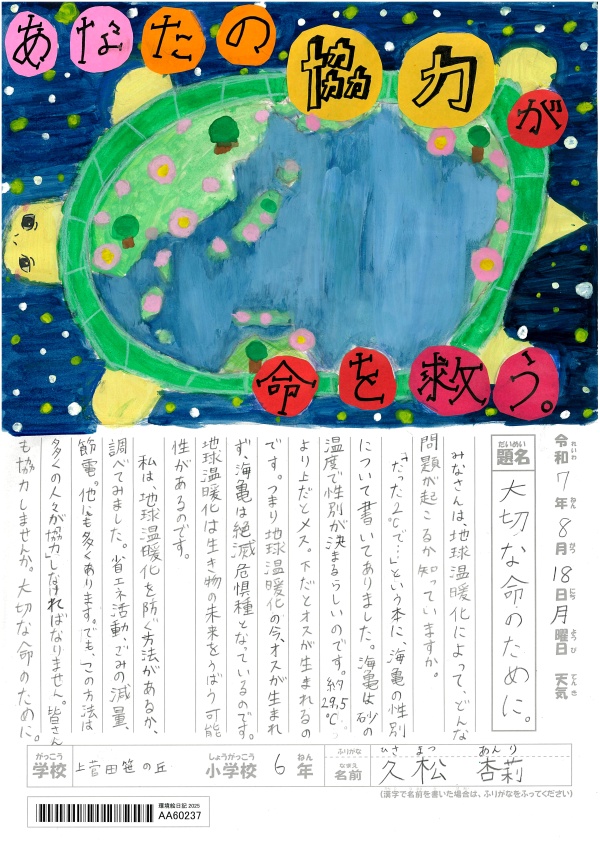 あなたの協力が
命を救う。
令和7年8月18日月曜日 天気
れいわ ねん がつ にち ようび てんき
だいめい
題名 大切な命のために。
みなさんは、地球温暖化によって、どんな
問題が起こるか知っていますか。
「たった2℃で…」という本に、海亀の性別
について書いてありました。海亀は砂の
温度で性別が決まるらしいのです。約29.5
より上だとメス。下だとオスが生まれるの
です。つまり地球温暖化の今、オスが生まれ
ず、海亀は絶滅危惧種となっているのです。
地球温暖化は生き物の未来をうばう可能
性があるのです。
私は、地球温暖化を防ぐ方法があるか、
調べてみました。省エネ活動、ごみの減量、
節電。他にも多くあります。でも、この方法は
多くの人々が「協力」しなければなりません。皆さん
も協力しませんか。大切な命のために。
がっこう しょうがっこう ねん
学校 上菅田笹の丘 小学校 6年
ふりがな ひさ まつ あん り
なまえ
名前 久松 杏莉
(漢字で名前を書いた場合は、ふりがなをふってください)
環境絵日記 2025
AA60237